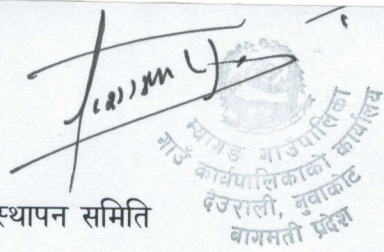 म्यागङ गाउँपालिका
गाउँ कार्यपालिकाको कार्यालय
देउराली, नुवाकोट
बागमती प्रदेश
स्थापन समिति